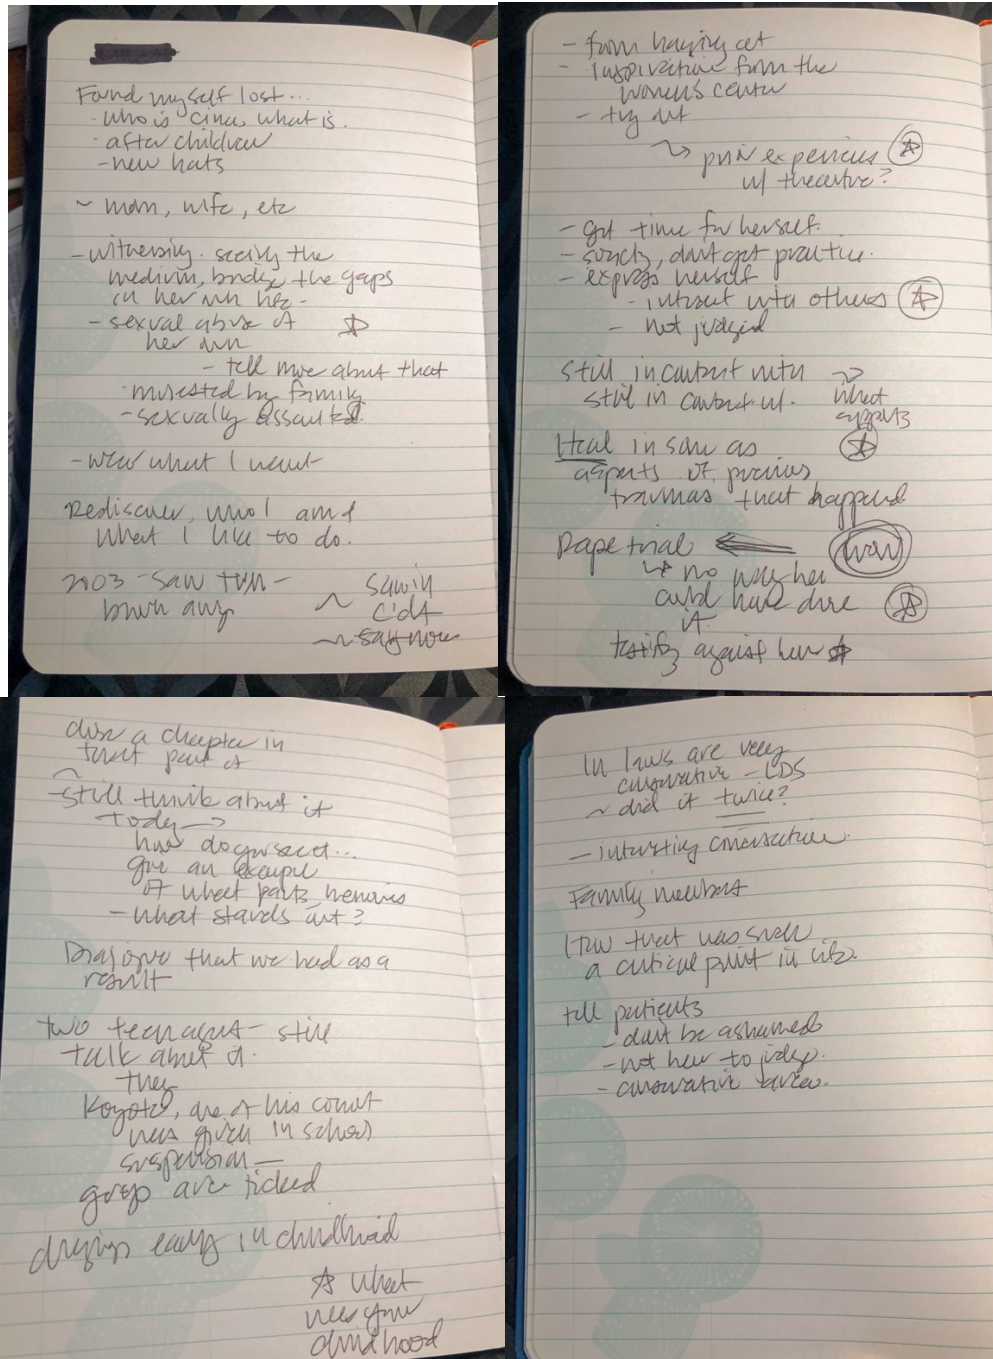 Found myself lost...
- who is          what is.
- after children
- new hats
~ mom, wife, etc
- witnessing. seeing the
medium, bridge the gaps
in her own
- sexual abuse of ☆
her own
- tell me more about that
- molested by family
- sexually assaulted.
- wear what I want
Rediscover, who I am &
what I like to do.
2003 - saw
~ saw in
- from having
- inspiration from the
women's center
- try out
prior experiences ☆
w/ theatre?
- got time for herself.
- society, don't get practice.
- express herself
- interact with others ☆
- not judged
Still in contact with →
still in contact w/. what
aspects
Heal in some as ☆
aspects of previous
traumas that happened
Rape trial ← how
↳ no way her
could have done ☆
it
testify against him ☆
close a chapter in
that part of
- still think about it
today →
how do you
give an example
of what parts, memories
- what stands out?
Dialogue that we had as a
result
two teenagers - still
talk about it.
they
was given in school
suspension —
group are ticked
early in childhood
☆ what
was your
childhood
In laws are very
conservative - LDS
~ did it twice?
- interesting conversation.
Family members
How that was such
a critical point in life.
tell patients
- don't be ashamed
- not here to judge.
- conservative area.